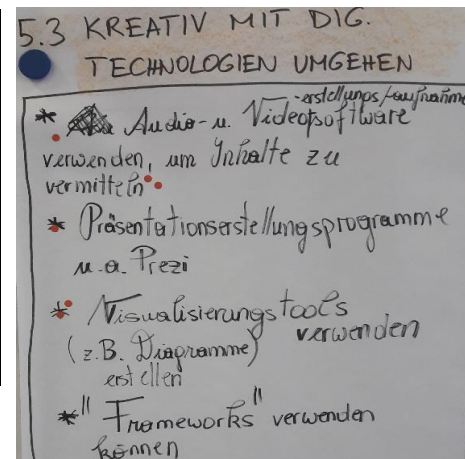 5.3 KREATIV MIT DIG.
TECHNOLOGIEN UMGEHEN
-erstellungs/-aufnahme
* Audio- u. Videosoftware
verwenden, um Inhalte zu
vermitteln
* Präsentationserstellungsprogramme
u.a. Prezi
* Visualisierungstools
verwenden
(z.B. Diagramme)
erstellen
* "Frameworks" verwenden
können